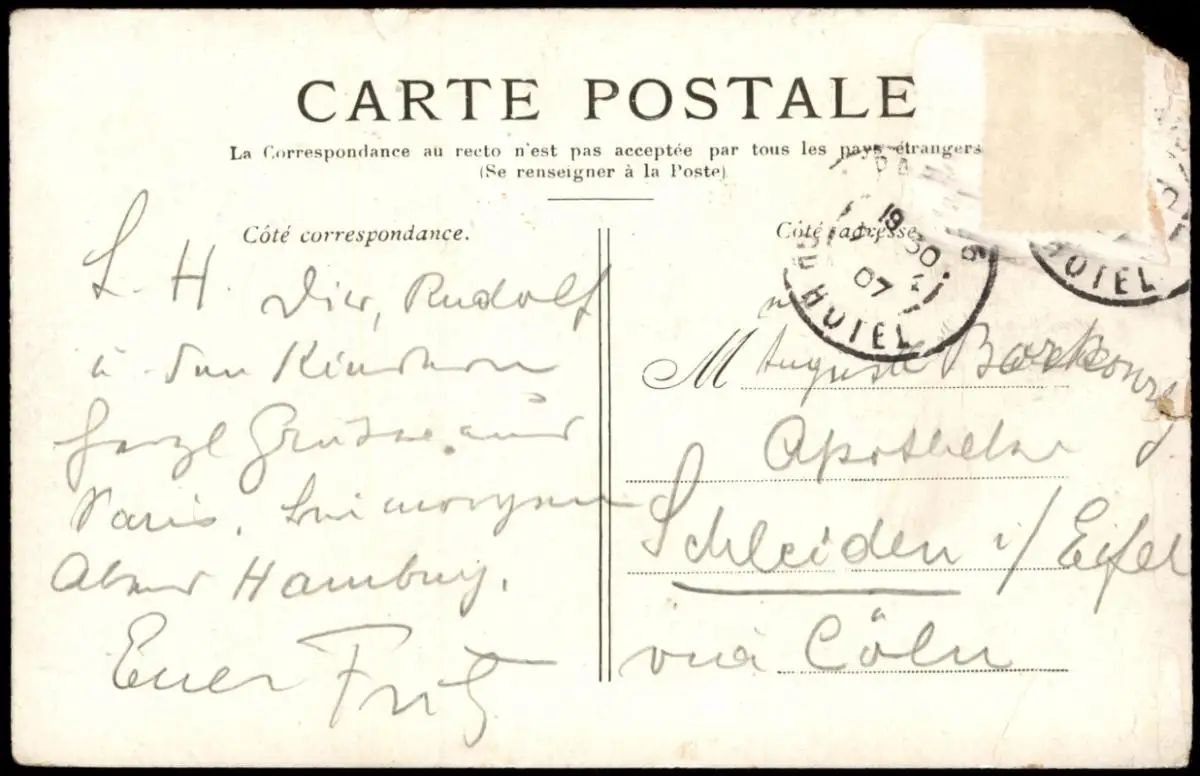 CARTE POSTALE
La Correspondance au recto n'est pas acceptée par tous les pays étrangers
(Se renseigner à la Poste)
Côté correspondance.
L. H. Dir, Rudolf
u. den Kindern
herzl Grüsse aus
Paris. Bin morgen
Abend Hamburg.
Euer Fritz
Côté adresse
19 30
07
HOTEL
HOTEL
M Auguste
Apotheke
Schleiden i/ Eifel
via Cöln